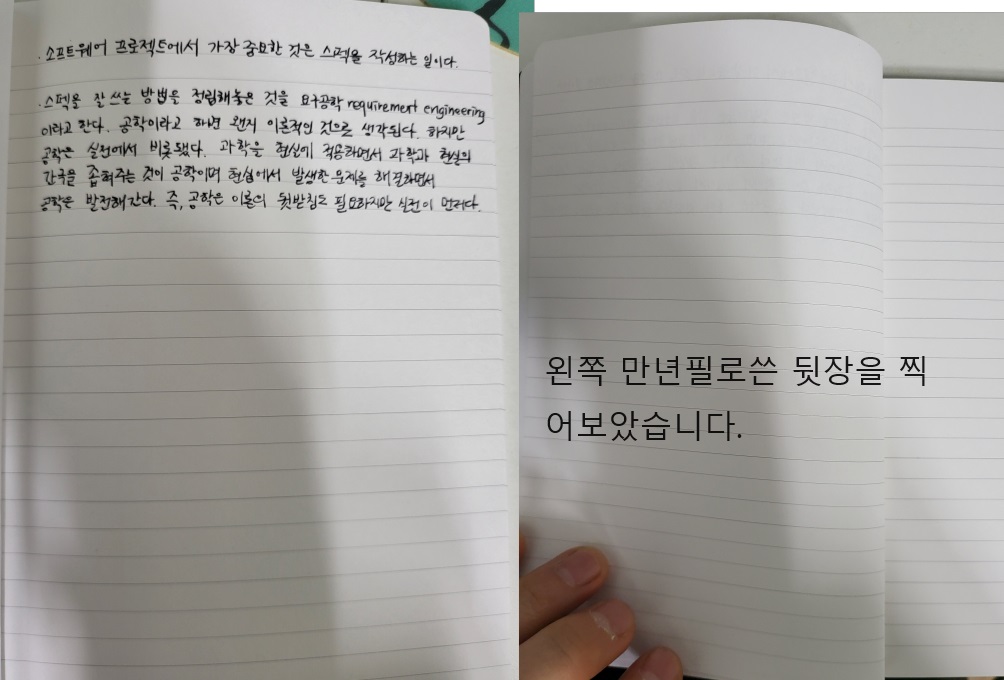 · 소프트웨어 프로젝트에서 가장 중요한 것은 스펙을 작성하는 일이다.
· 스펙을 잘 쓰는 방법을 정립해놓은 것을 요구공학 requirement engineering
이라고 한다. 공학이라고 하면 왠지 이론적인 것으로 생각된다. 하지만
공학은 실전에서 비롯됐다. 과학을 현실에 적용하면서 과학과 현실의
간극을 좁혀주는 것이 공학이며 현실에서 발생한 문제를 해결하면서
공학은 발전해간다. 즉, 공학은 이론의 뒷받침도 필요하지만 실전이 먼저다.
왼쪽 만년필로쓴 뒷장을 찍
어보았습니다.